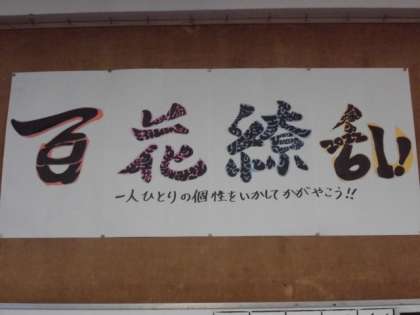 百花繚乱
一人ひとりの個性をいかしてかがやこう!!